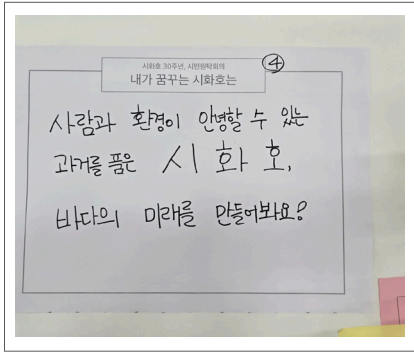 시화호 30주년, 시민원탁회의
내가 꿈꾸는 시화호는
④
사람과 환경이 안녕할 수 있는
과거를 품은 시화호,
바다의 미래를 만들어봐요?